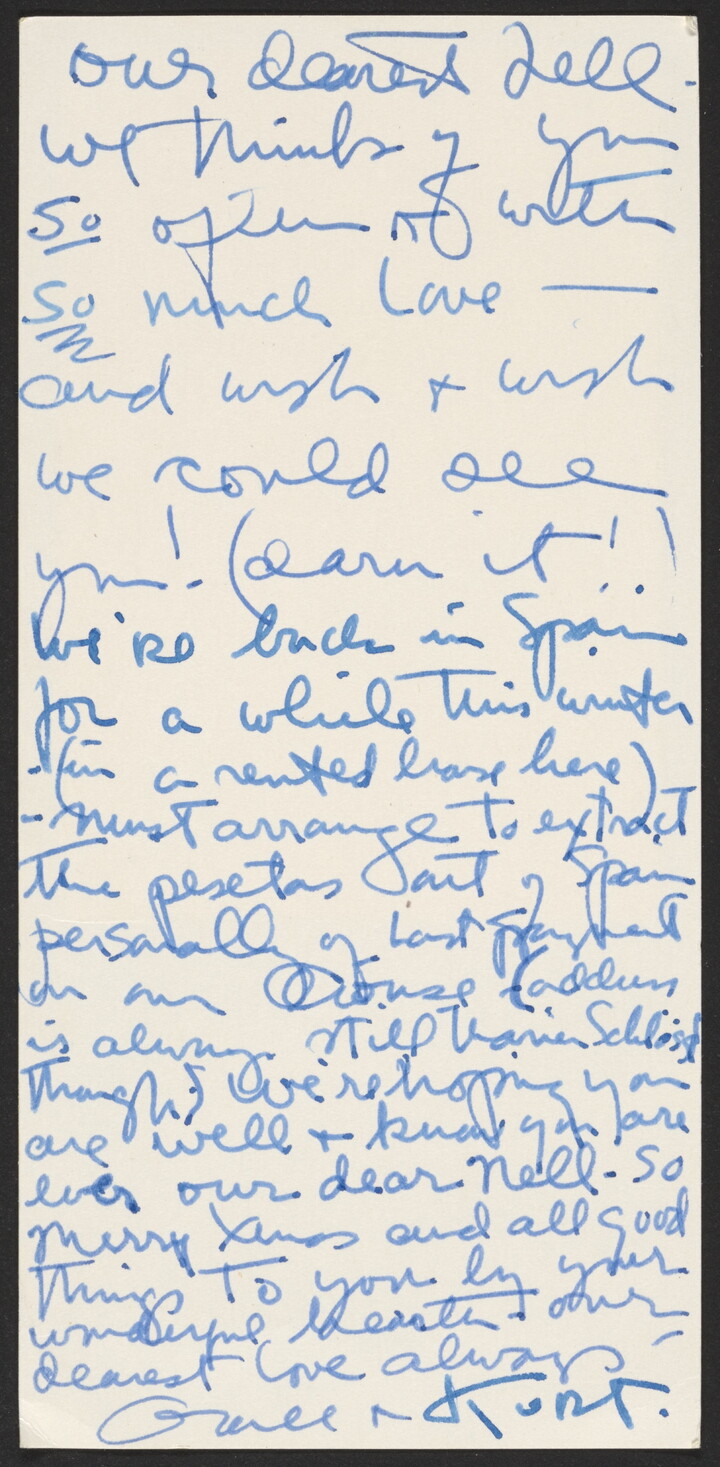 our dearest Nell -
we think of you
so often & with
so much love —
and wish + wish
we could see
you! (darn it!)
We're back in Spain
for a while this winter
- (in a rented house here)
- must arrange to extract
the pesetas out of Spain
personally of last payment
on our house (address
is always still Schloss
though) We're hoping you
are well + know you are
ever our dear Nell - So
Merry Xmas and all good
things to you by your
wonderful hearth. our
dearest love always -
Grace + Kurt.